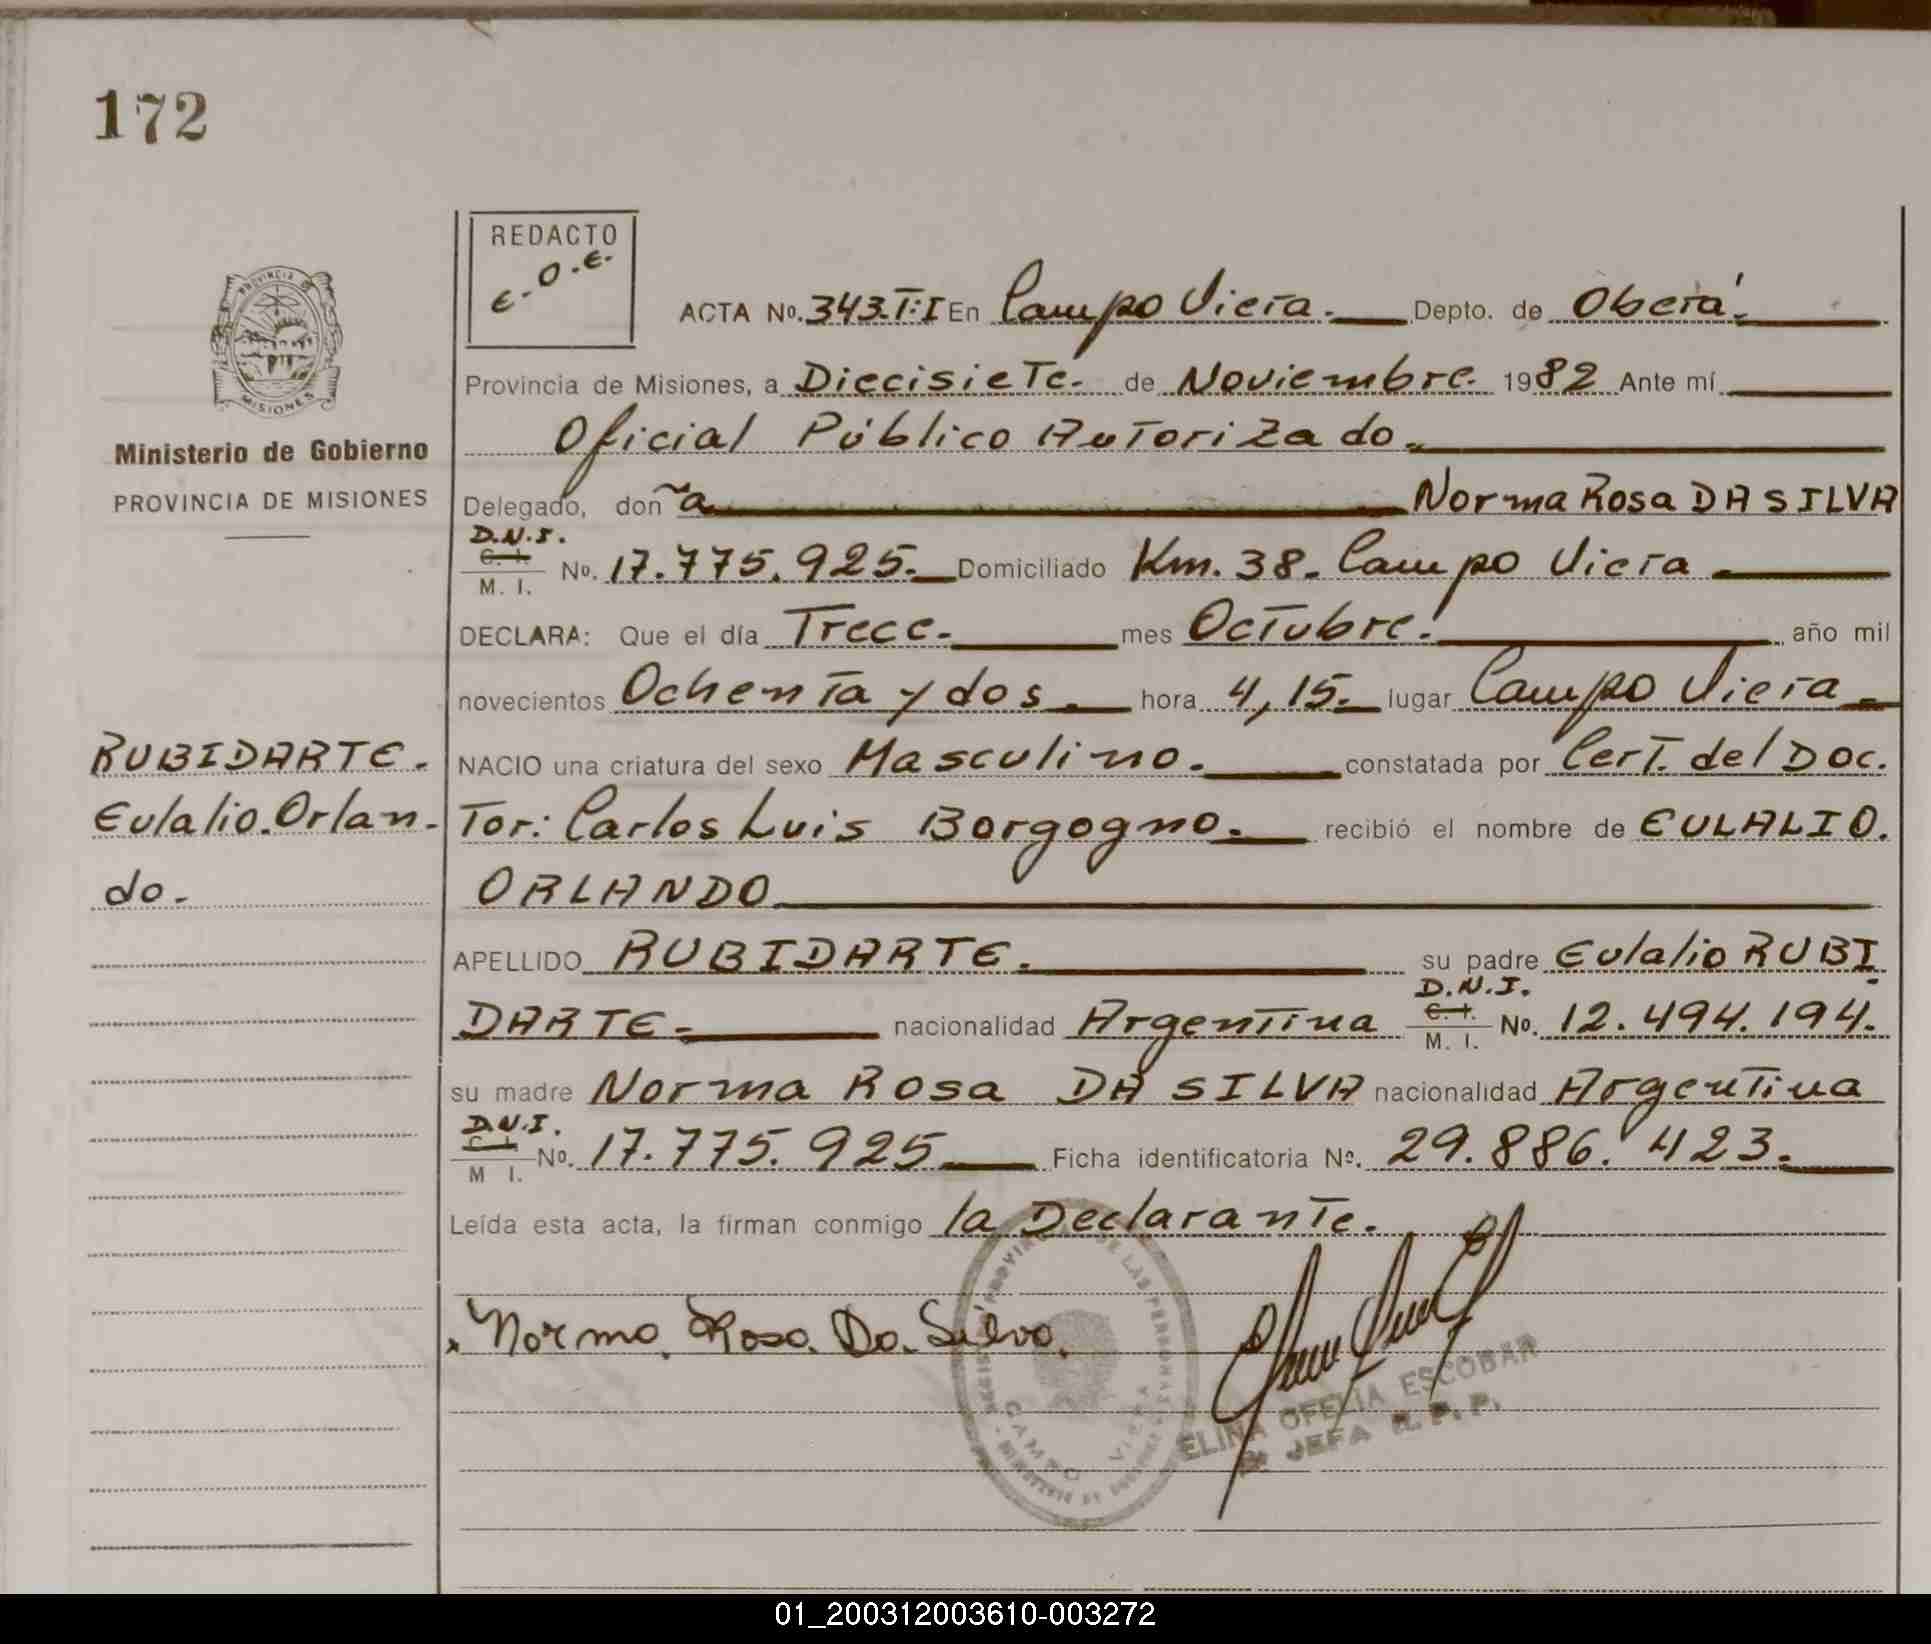 172
REDACTO
E.O.E.
PROVINCIA DE
MISIONES
Ministerio de Gobierno
PROVINCIA DE MISIONES
ACTA No. 343.T:I En Campo Viera. Depto. de Oberá.
Provincia de Misiones, a Diecisiete. de Noviembre. 1982 Ante mí
Oficial Público Autorizado.
Delegado, doña Norma Rosa DA SILVA
D.N.I.
C. I.
M. I. No. 17.775.925. Domiciliado Km. 38. Campo Viera
DECLARA: Que el día Trece. mes Octubre. año mil
novecientos Ochenta y dos. hora 4,15. lugar Campo Viera.
NACIO una criatura del sexo Masculino. constatada por Cert. del Doc.
tor: Carlos Luis Borgogno. recibió el nombre de EULALIO.
ORLANDO
APELLIDO RUBIDARTE. su padre Eulalio RUBI
DARTE. nacionalidad Argentina D.N.I. C. I. M. I. No. 12.494.194.
su madre Norma Rosa DA SILVA nacionalidad Argentina
D.N.I.
C. I.
M I. No. 17.775.925 Ficha identificatoria Nº. 29.886.423.
Leída esta acta, la firman conmigo la Declarante.
RUBIDARTE.
Eulalio.Orlan.
do.
Norma. Rosa. Da. Silva.
CAMPO VIERA
ELINA OFELIA ESCOBAR
JEFA R.P.P.
01_200312003610-003272